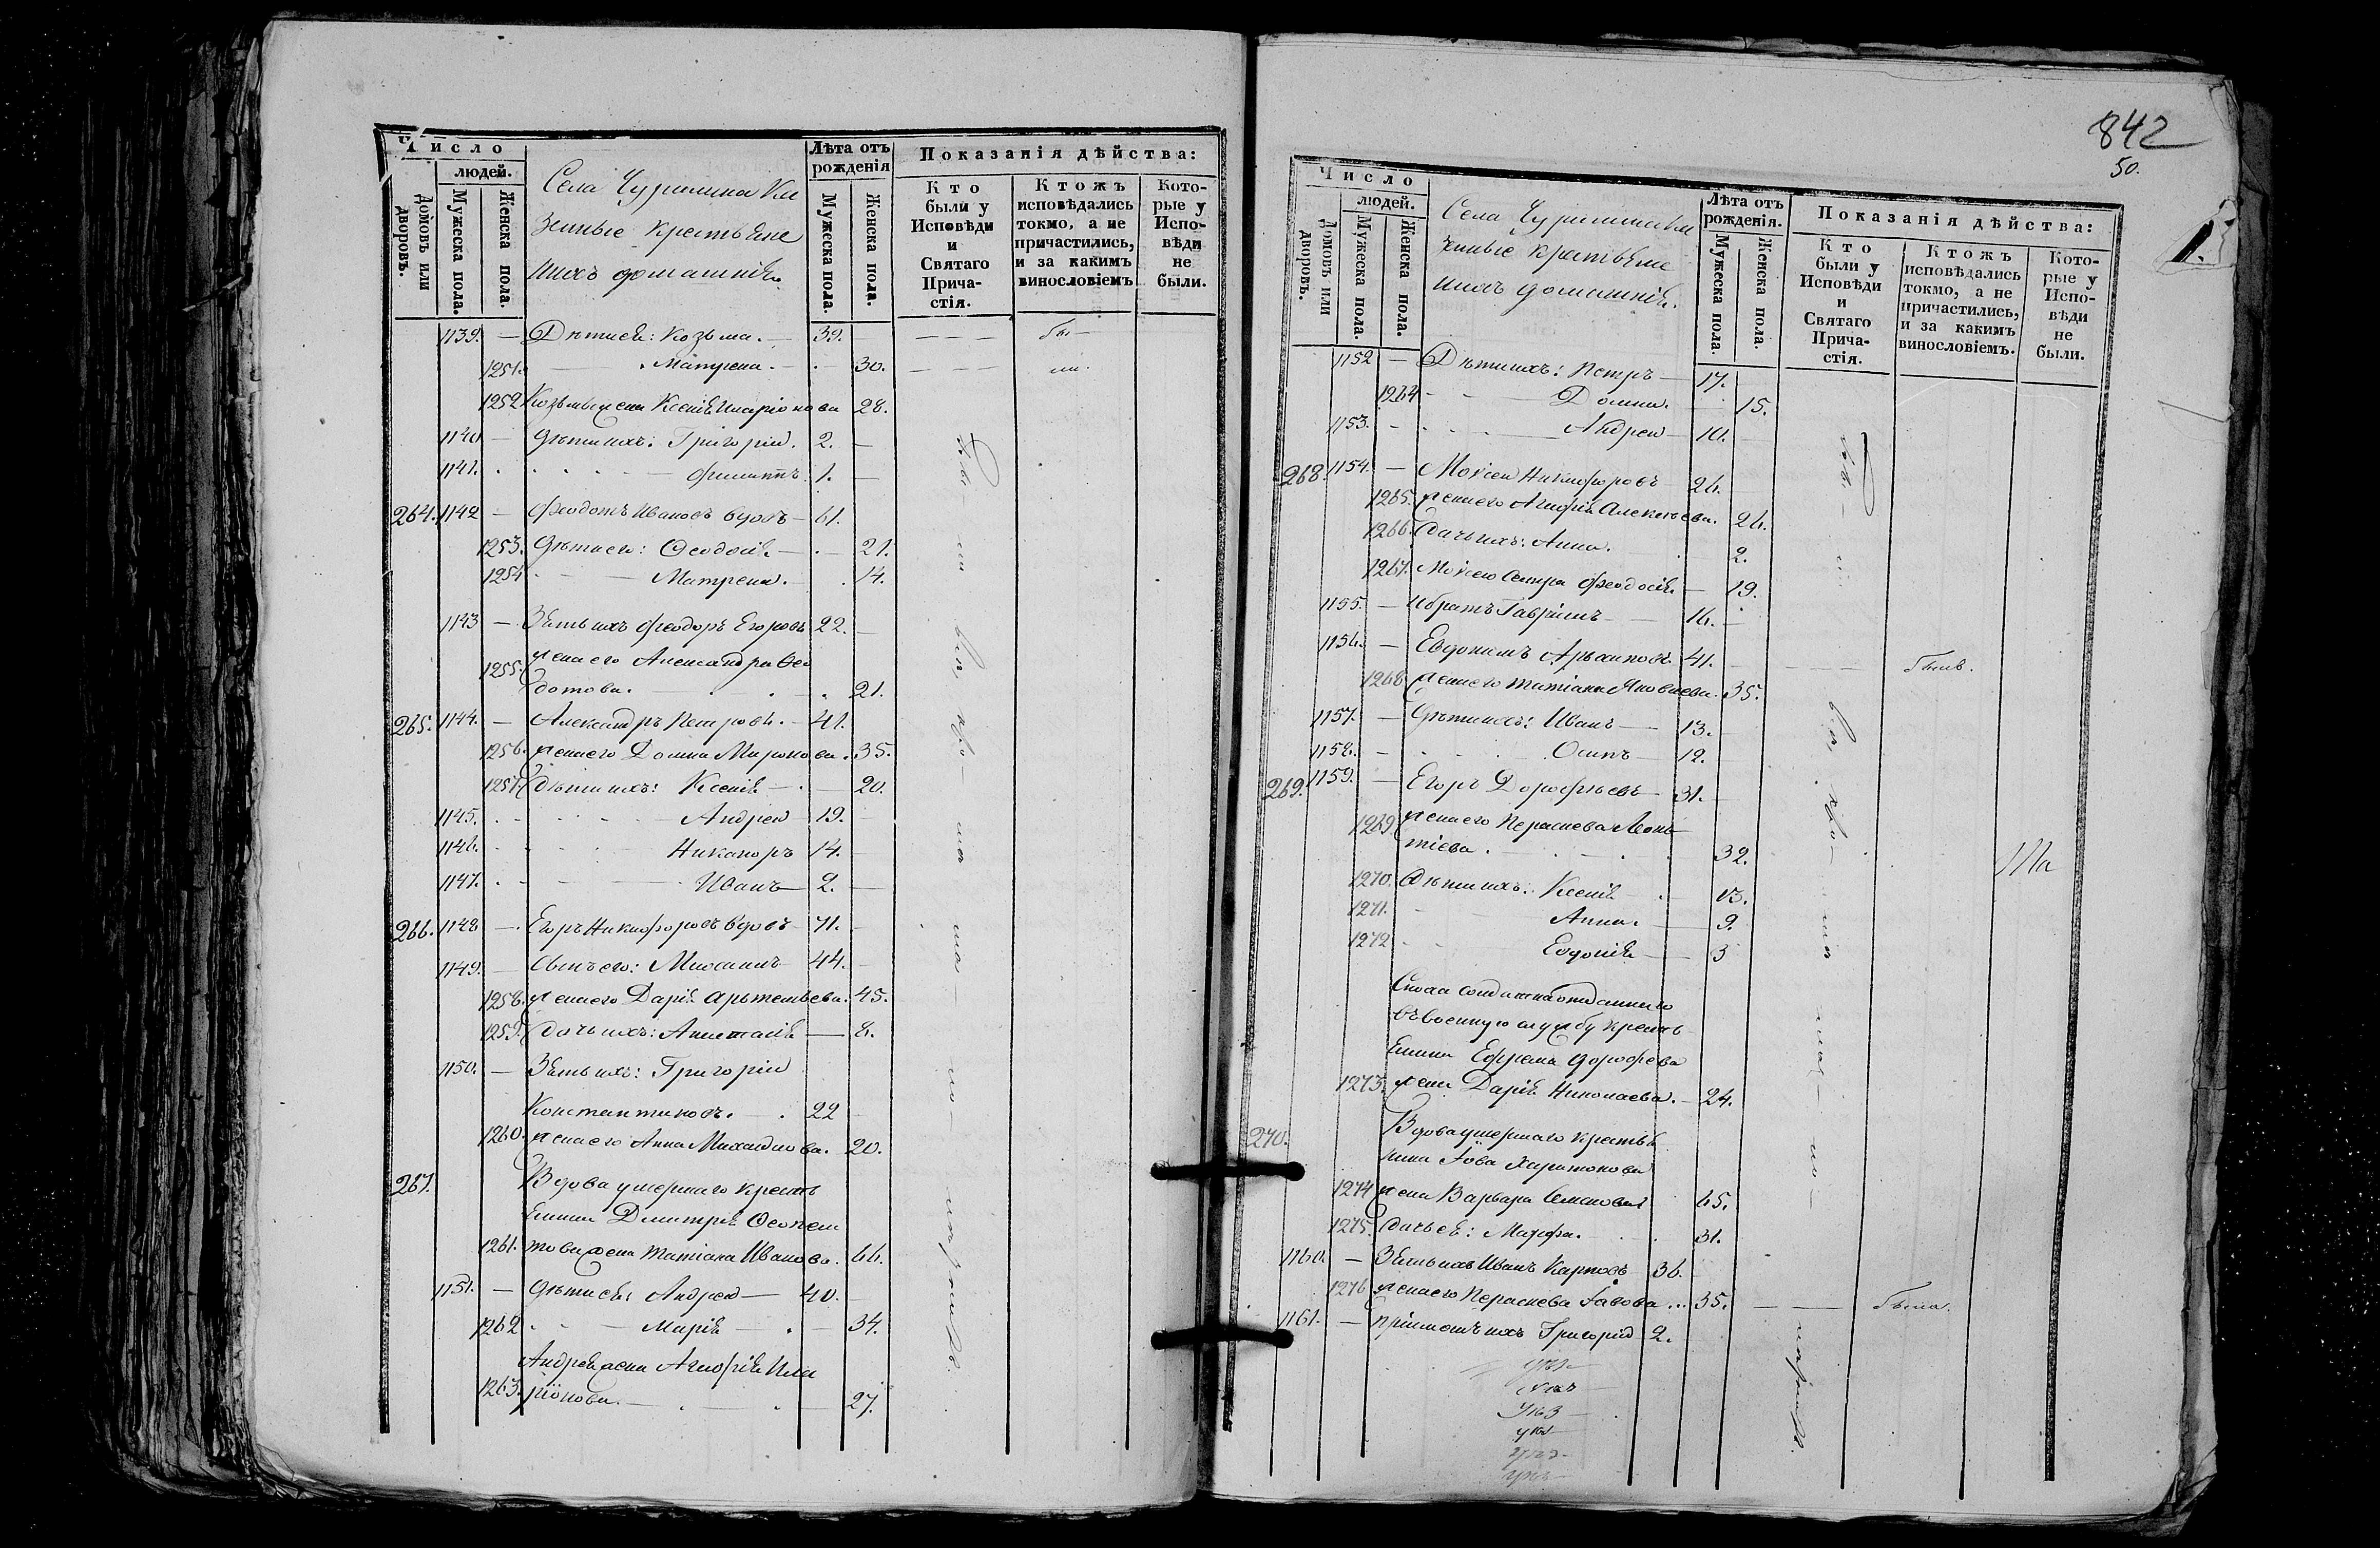 Число
людей.
Домовъ или дворовъ.
Мужеска пола.
Женска пола.
Села Чуримина Ка
зенные крестьяне
и ихъ домашнія.
Лѣта отъ рожденія
Мужеска пола.
Женска пола.
Показанія дѣйства:
Кто были у Исповѣди и Святаго Причастія.
Ктожъ исповѣдались токмо, а не причастились, и за какимъ винословіемъ
Которые у Исповѣди не были.
1139. — Дѣти ея: Козьма. — 39. — — — бы —
1251. — Матрена. — 30. — — — ли.
1252 Козьмы жена Ксенія Иларіонова 28.
1140 — Дѣти ихъ: Григорій. 2. —
1141. Филиппъ. 1. —
264. 1142 — Феодотъ Ивановъ вдовъ — 61.
1253. Дѣти его: Феодосія — 21.
1254 — Матрена. 14.
1143 — Зять ихъ Феодоръ Егоровъ 22. —
1255. жена его Александра Фео
дотова. 21.
265. 1144. — Александръ Петровъ. — 41.
1256. жена его Домна Миронова. 35.
1257. Дѣти ихъ: Ксенія — 20.
1145. Андрей 19.
1146. Никаноръ 14.
1147. Иванъ — 2. —
266. 1148 — Егоръ Никифоровъ вдовъ 71. —
1149. — Сынъ его: Михаилъ 44. —
1258. жена его Дарія Артемьева. 45.
1259. дочь ихъ: Анастасія — 8.
1150. — Зять ихъ: Григорій
Константиновъ. 22 —
1260. жена его Анна Михаилова. 20.
267. Вдова умершаго кресть
янина Димитрія Феопем
това жена Татіана Иванова. 66.
1261.
1151. — Дѣти ея: Андрей — 40. —
1262 — Марія — 34.
Андрея жена Агафія Ила
1263. ріонова. 27.
842
50.
Число
людей.
Домовъ или дворовъ.
Мужеска пола.
Женска пола.
Села Чуримина Ка
зенные крестьяне
и ихъ домашнія.
Лѣта отъ рожденія.
Мужеска пола.
Женска пола.
Показанія дѣйства:
Кто были у Исповѣди и Святаго Причастія.
Ктожъ исповѣдались токмо, а не причастились, и за какимъ винословіемъ.
Которые у Исповѣди не были.
1152 — Дѣти ихъ: Петръ — 17.
1264 Домна. 15.
1153. Андрей — 10.
268. 1154. — Моисей Никифоровъ 26.
1265. жена его Агафія Алексѣева. 26.
1266. Дочь ихъ: Анна. 2.
1267. Моисею сестра Феодосія — 19.
1155. — и братъ Гавріилъ — 16.
1156. — Евдокимъ Архиповъ 41. — — — былъ.
1268 жена его Татіана Яковлева. 35.
1157. — Дѣти ихъ: Иванъ — 13.
1158. — Осипъ — 12.
269. 1159. — Егоръ Дорофѣевъ — 31. —
1269 жена его Параскева Леон
тіева. 32.
1270. Дѣти ихъ: Ксенія 13.
1271. Анна. 9.
1272 Евдокія — 3
Сноха солдатка отданнаго
въ военную службу кресть
янина Ефрема Дорофѣева
1273. жена Дарія Николаева. — 24.
270. Вдова умершаго крестья
нина Іова Харитонова
1274 жена Варвара Семенова 65.
1275. дочь ея: Марфа. 31.
1160. — Зять ихъ Иванъ Карповъ 36. —
1276 жена его Параскева Іовова ... 35. — — была.
1161. — пріимышъ ихъ Григорій 2.